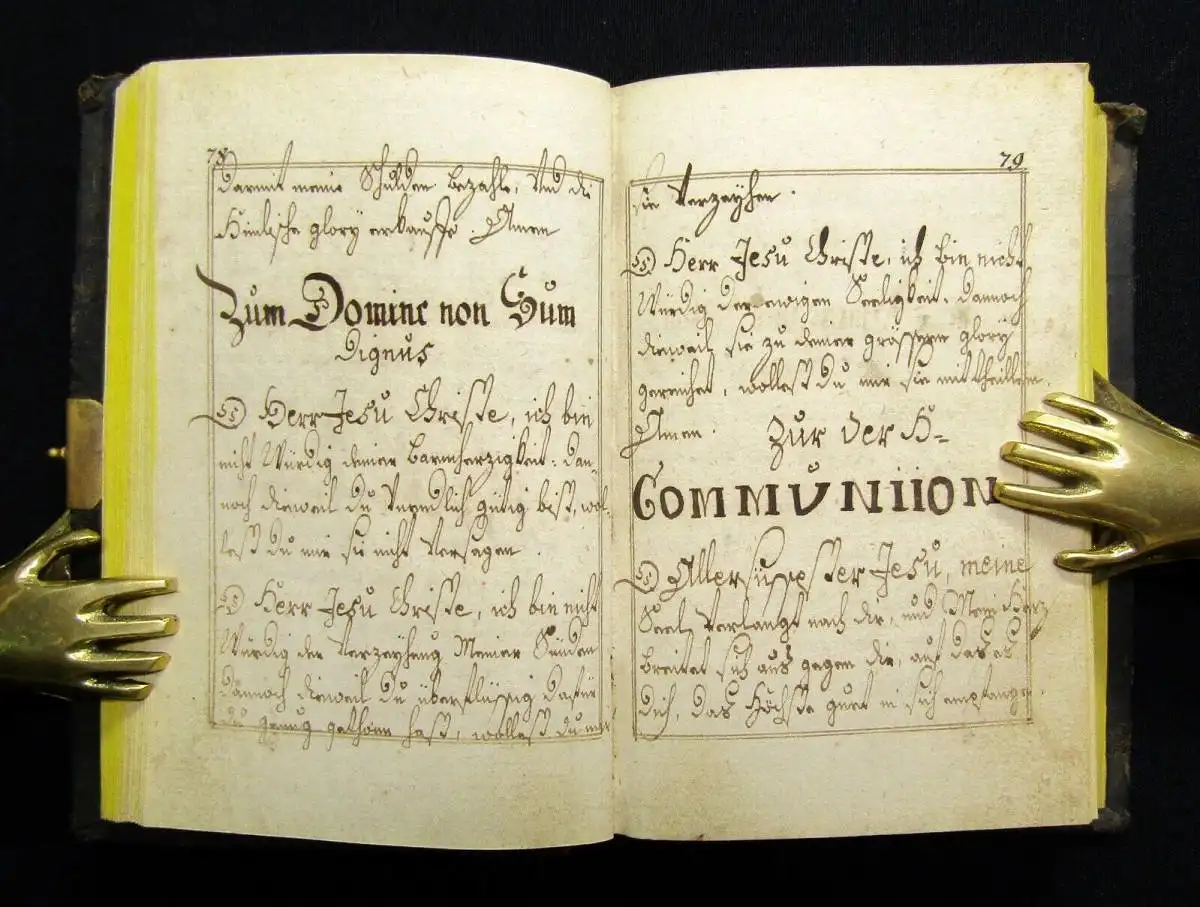 78
Darmit meine Schulden bezahle, Und die
Himlische glory erkauffe. Amen
Zum Domine non Sum
dignus
O Herr Jesu Christe, ich bin
nicht Würdig deiner Barmherzigkeit: dan-
noch dieweil du Unendlich gütig bist, wol-
lest du mir sie nicht Versagen.
O Herr Jesu Christe, ich bin nicht
Würdig der Verzeyhung Meiner Sünden
dannoch dieweil du überflüssig dafür
genug gethonn hast, wollest du mir
79
sie Verzeyhen.
O Herr Jesu Christe, ich bin nicht
Würdig der ewigen Seeligkeit: dannoch
dieweil sie zu deiner grössern glory
gereichet, wollest du mir sie mittheillen.
Amen. Zur der H-
COMMUNIION
O Allersüssester Jesu, meine
Seel Verlangt nach dir, und Mein Hertz
breitet sich aus gegen dir, auf das es
dich, das Höchste guet in sich empfange.